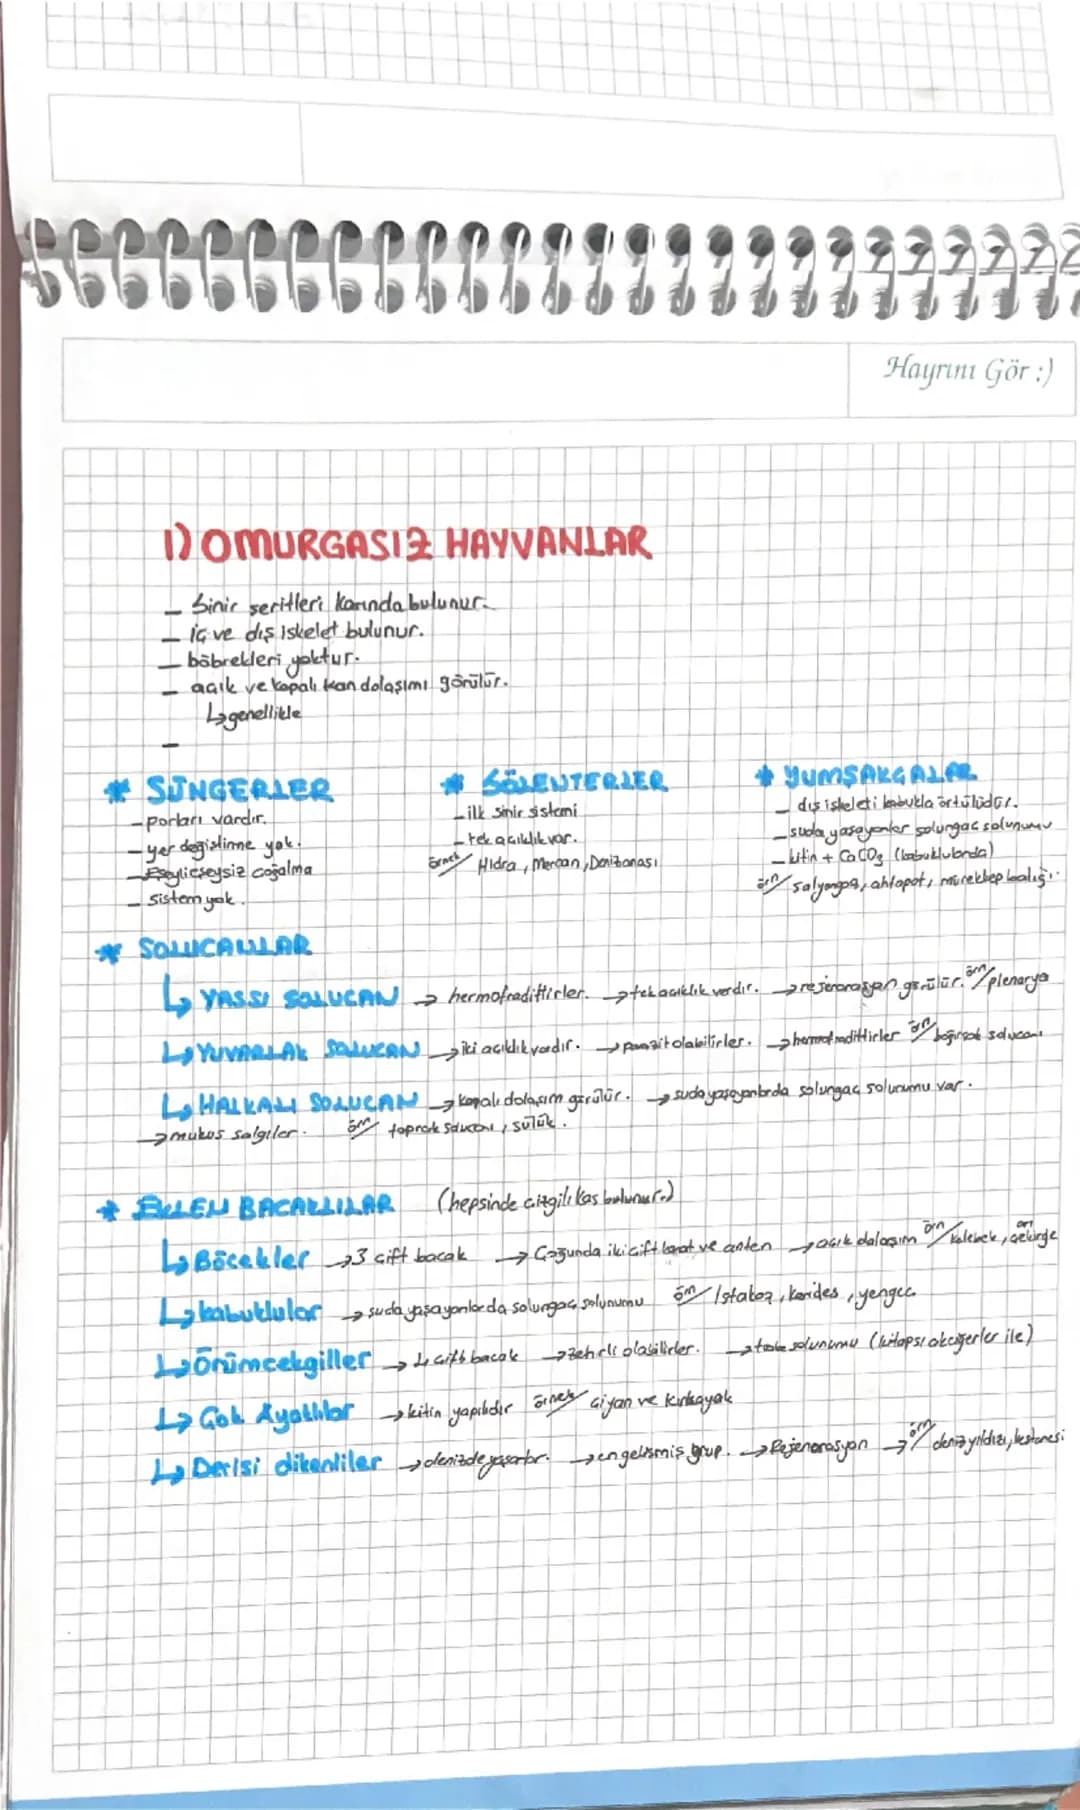 Hayrını Gör :)
1) OMURGASIZ HAYVANLAR
_ Sinir şeritleri karında bulunur.
_ iç ve dış iskelet bulunur.
_ böbrekleri yoktur.
_ açık ve kapalı kan dolaşımı görülür.
↳ genellikle
_
* SÜNGERLER
- porları vardır.
- yer değiştirme yok.
- Eşeyli eşeysiz çoğalma
- sistem yok.
* SÖLENTERLER
- ilk sinir sistemi
- tek açıklık var.
örnek/ Hidra, Mercan, Denizanası
* YUMŞAKÇALAR
_ dış iskeleti kabukla örtülüdür.
_ suda yaşayanlar solungaç solunumu
_ kitin + CaCO3 (kabuklularda)
örn/ salyangoz, ahtapot, mürekkep balığı.
* SOLUCANLAR
↳ YASSI SOLUCAN → hermofradittirler. → tek açıklık vardır. → rejenerasyon görülür. örn/ plenarya
↳ YUVARLAK SOLUCAN → iki açıklık vardır. → parazit olabilirler. → hermofradittirler örn/ bağırsak solucanı
↳ HALKALI SOLUCAN → kapalı dolaşım görülür. → suda yaşayanlarda solungaç solunumu var.
→ mukus salgılar. örn/ toprak solucanı, sülük.
* EKLEM BACAKLILAR (hepsinde çizgili kas bulunur.)
↳ Böcekler → 3 çift bacak → Çoğunda iki çift kanat ve anten → açık dolaşım örn/ kelebek, çekirge
↳ kabuklular → suda yaşayanlarda solungaç solunumu örn/ Istakoz, karides, yengeç
↳ Örümcekgiller → 4 çift bacak → zehirli olabilirler. → trake solunumu (kitapsı akciğerler ile)
↳ Çok Ayaklılar → kitin yapılıdır örnek/ çiyan ve kırkayak
↳ Derisi dikenliler → denizde yaşarlar. → en gelişmiş grup. → Rejenerasyon → örn/ deniz yıldızı, kestanesi